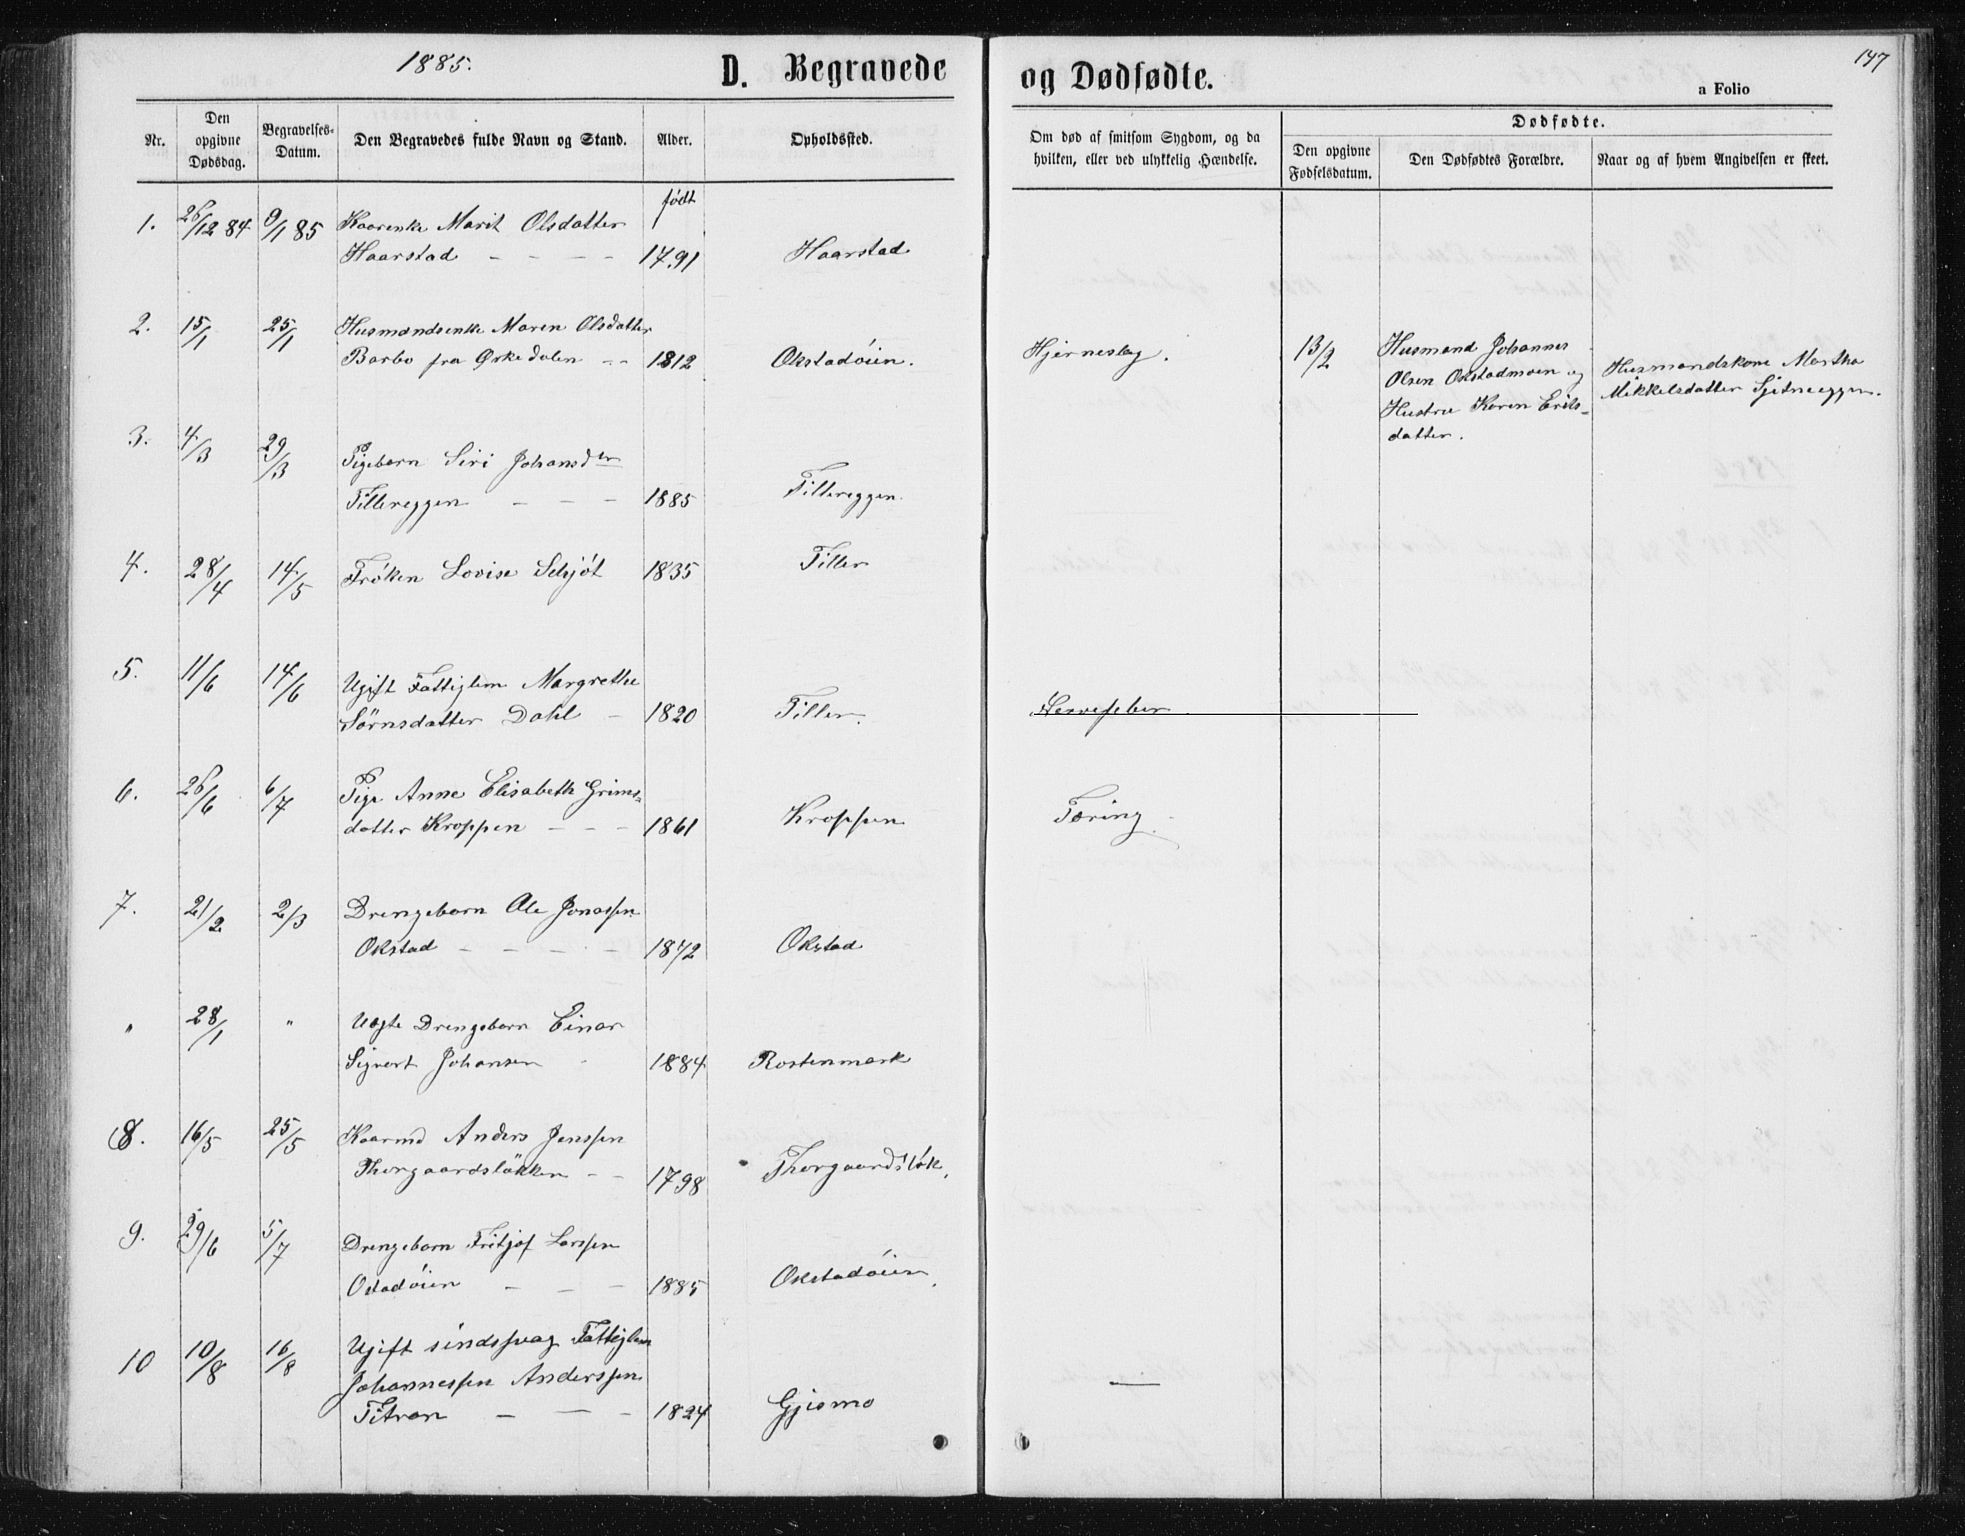 1885.
D. Begravede og Dødfødte.
147
a Folio
Nr.
Den opgivne Dødsdag.
Begravelses-Datum.
Den Begravedes fulde Navn og Stand.
Alder.
Opholdssted.
Om død af smitsom Sygdom, og da hvilken, eller ved ulykkelig Hændelse.
Dødfødte.
Den opgivne Fødselsdatum.
Den Dødfødtes Forældre.
Naar og af hvem Angivelsen er skeet.
født
1. 26/12 84 9/1 85 Kaarenke Marit Olsdatter
Haarstad - - - - 1791 Haarstad
2. 15/1 25/1 Husmandsenke Maren Olsdatter
Barbo fra Ørkedalen - - 1812 Okstadøien. Hjerneslag.
13/2 Husmand Johannes
Olsen Okstadmoen og
Hustru Karen Erils-
datter.
Husmandskone Martha
Mikkelsdatter Sjetneeggen.
3. 4/3 29/3 Pigebarn Siri Johansdtr
Tillereggen - - - 1885 Tillereggen.
4. 28/4 14/5 Frøken Lovise Schjøt 1835 Tiller
5. 11/6 14/6 Ugift Fattiglem Margrethe
Sørnsdatter Dahl - 1820 Tiller. Nervefeber.
6. 26/6 6/7 Pige Anne Elisabeth Grims-
datter Kroppen - - - 1861 Kroppen Tæring.
7. 21/2 2/3 Drengebarn Ole Jonassen
Okstad - - - - 1872 Okstad
" 28/1 " Uægte Drengebarn Einar
Sigvart Johansen - 1884 Rostenmark
8. 16/5 25/5 Kaarmd Anders Jenssen
Thorgaardsløkken - - 1798 Thorgaardsløk.
9. 29/6 5/7 Drengebarn Fritjof Larssen
Ostadøien - - - 1885 Okstadøien.
10 10/8 16/8 Ugift sindssvag Fattiglem
Johannessen Anderssen
Titran - - - 1824 Gjismo —